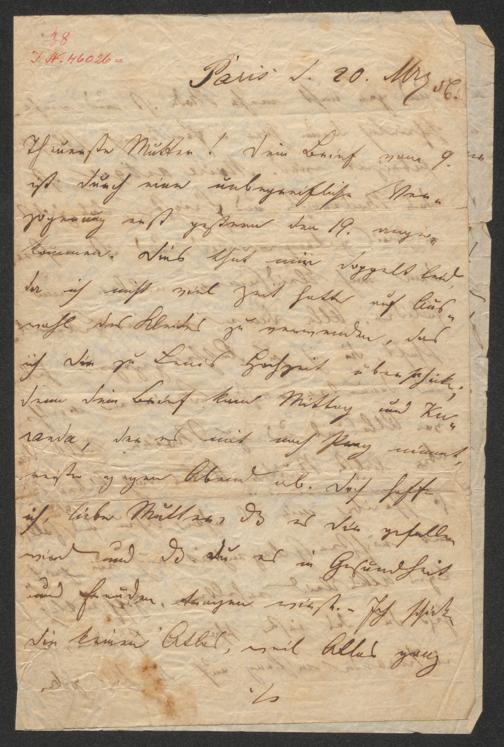 38
I.N. 46026
Paris d. 20. Mrz 56.
Theuerste Mutter! Dein Brief vom 9.
ist durch eine unbegreifliche Ver-
zögerung erst gestern den 19. ange-
kommen. Dies thut mir doppelt leid,
da ich nicht viel Zeit hatte auf Aus-
wahl des Kleides zu verwenden, das
ich Dir zu Hochzeit überschicke,
denn dein Brief kam Mittag und Ku-
randa, der es mit nach Prag nimmt,
reiste gegen Abend ab. Doch hoffe
ich, liebe Mutter, dß es Dir gefallen
wird und dß Du es in Gesundheit
und Freuden tragen wirst. - Ich schicke
Dir keinen Atlas, weil Atlas ganz